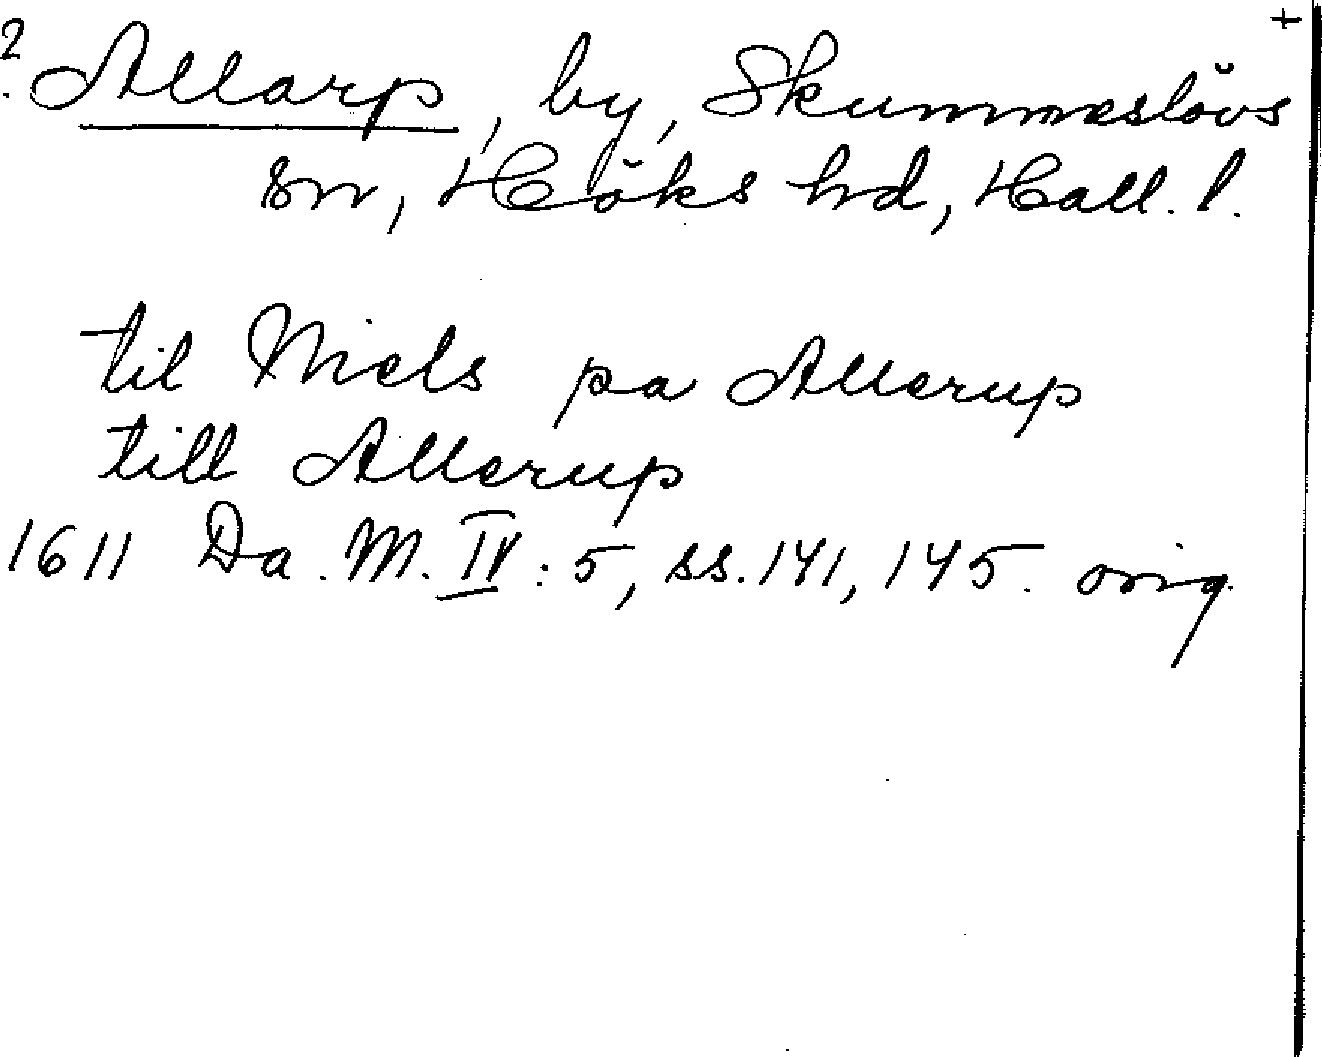 +
? Allarp, by, Skummeslövs
sn, Höks hd, Hall. l.
til Niels pa Allerup
till Allerup
1611 Da. M. IV: 5, ss. 141, 145. orig.